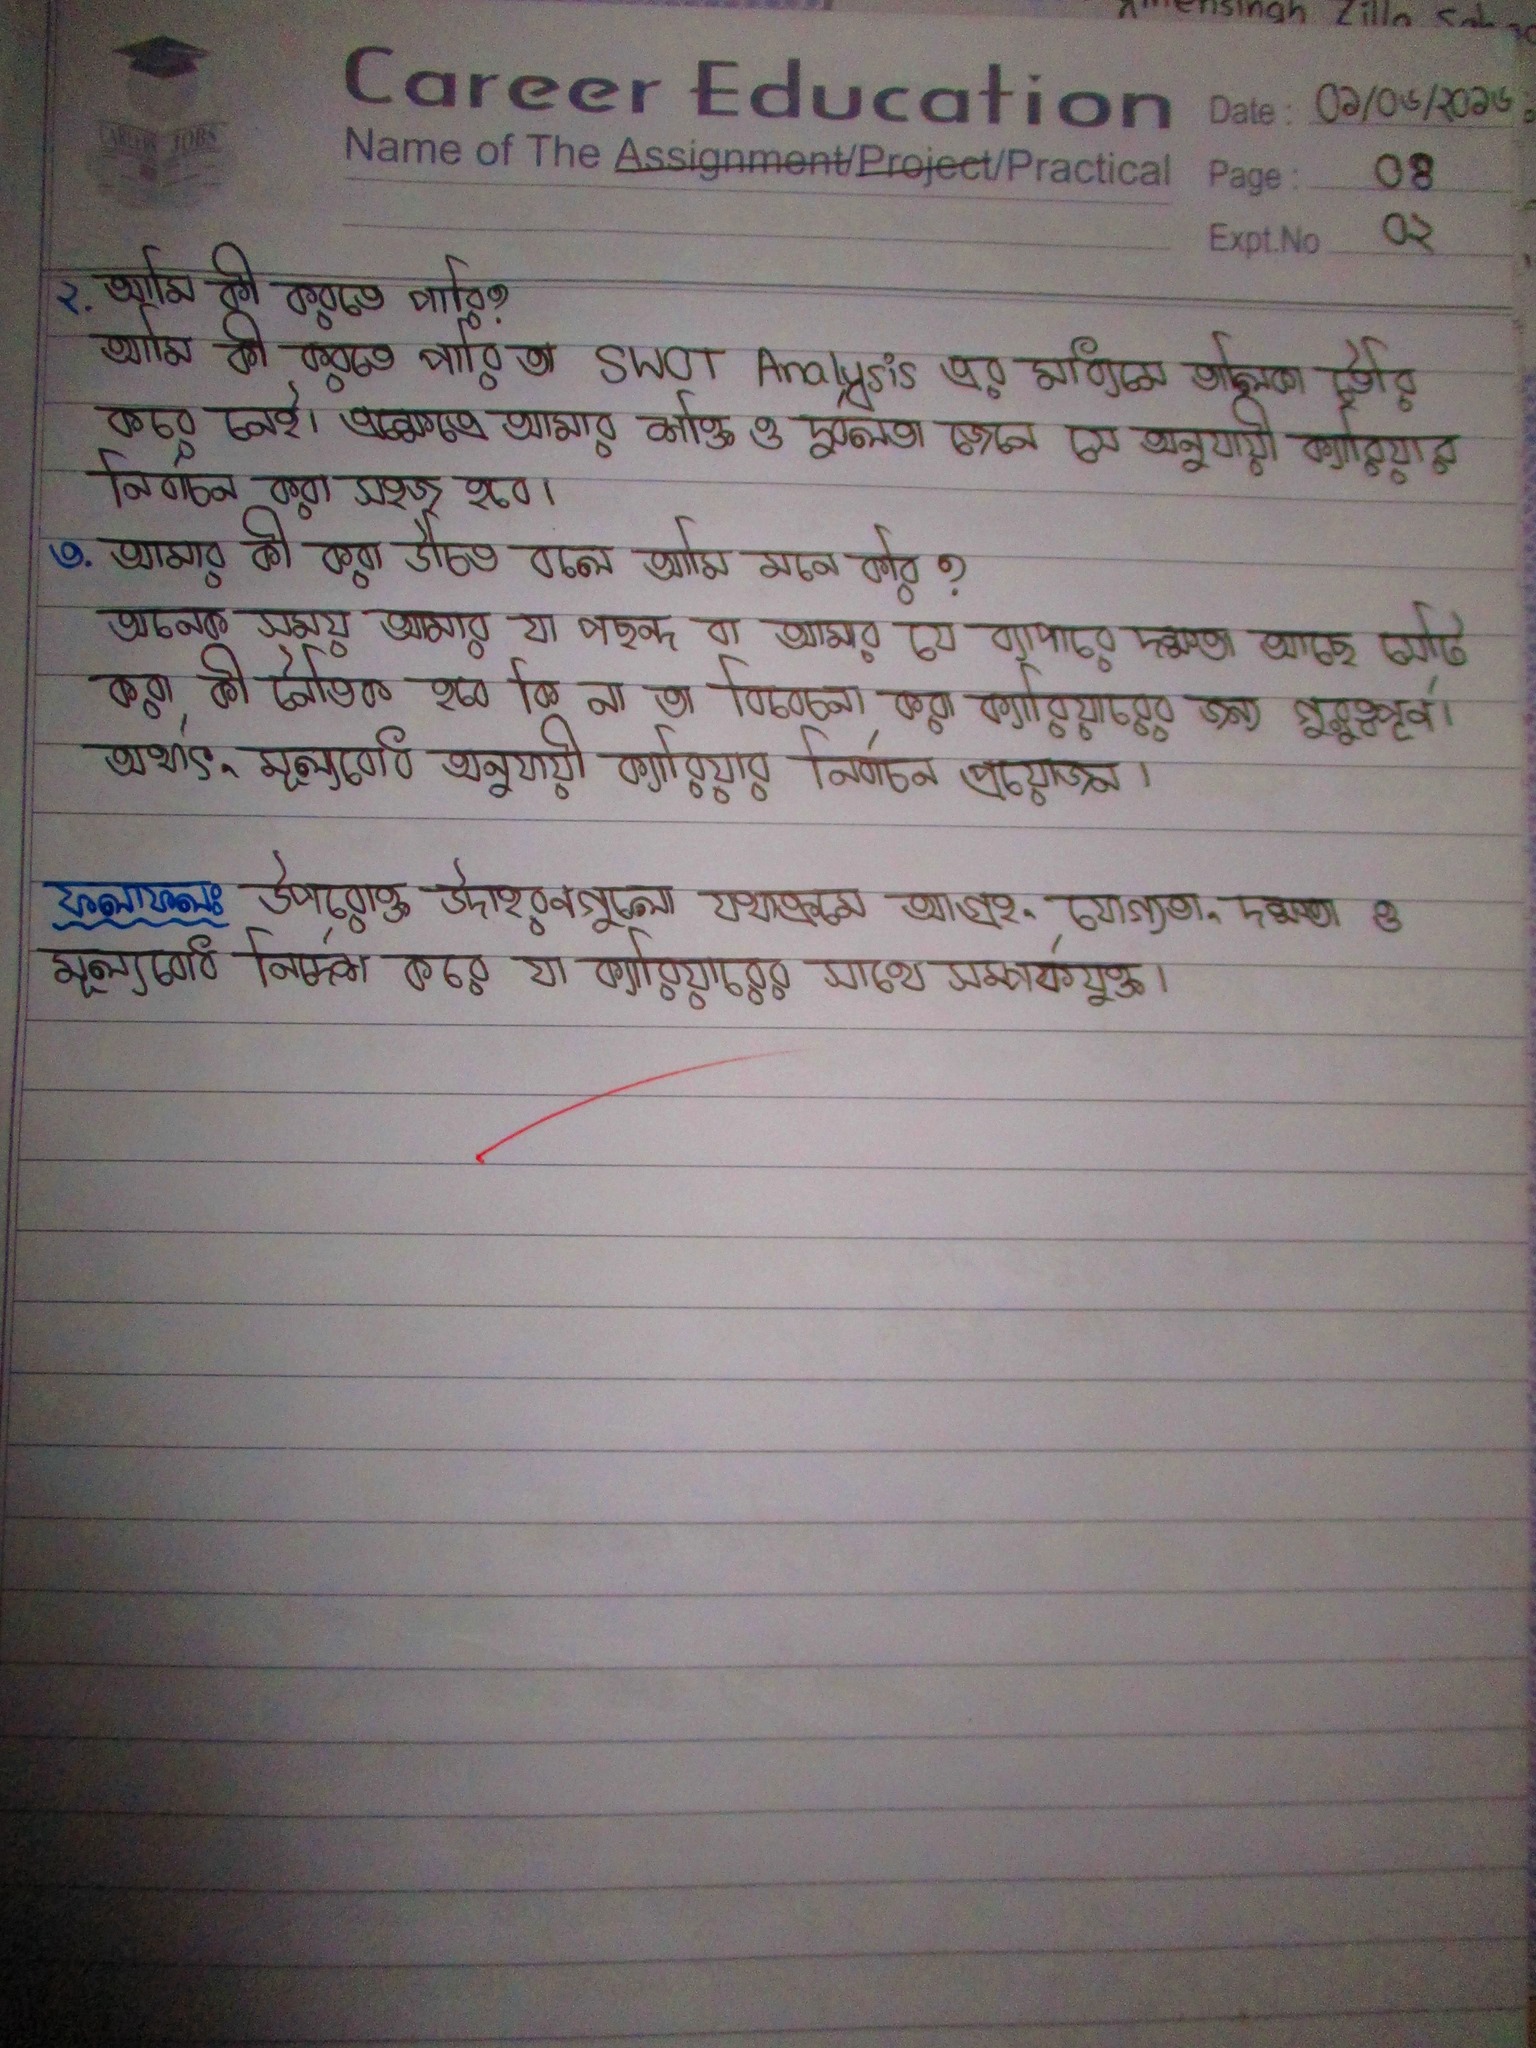 Zilla
Career Education
Date: 02/06/২০১৬
Name of The Assignment/Project/Practical
Page: 08
Expt.No ০২
২. আমি কী করতে পারি?
আমি কী করতে পারি তা SWOT Analysis এর মাধ্যমে তালিকা তৈরি
করে নেই। এক্ষেত্রে আমার শক্তি ও দুর্বলতা জেনে সে অনুযায়ী ক্যারিয়ার
নির্বাচন করা সহজ হবে।
৩. আমার কী করা উচিত বলে আমি মনে করি?
অনেক সময় আমার যা পছন্দ বা আমার যে ব্যাপারে দক্ষতা আছে সেটি
করা কী নৈতিক হবে কি না তা বিবেচনা করা ক্যারিয়ারের জন্য গুরুত্বপূর্ণ।
অর্থাৎ, মূল্যবোধ অনুযায়ী ক্যারিয়ার নির্বাচন প্রয়োজন।
ফলাফলঃ উপরোক্ত উদাহরনগুলো যথাক্রমে আগ্রহ, যোগ্যতা, দক্ষতা ও
মূল্যবোধ নির্দেশ করে যা ক্যারিয়ারের সাথে সম্পর্কযুক্ত।